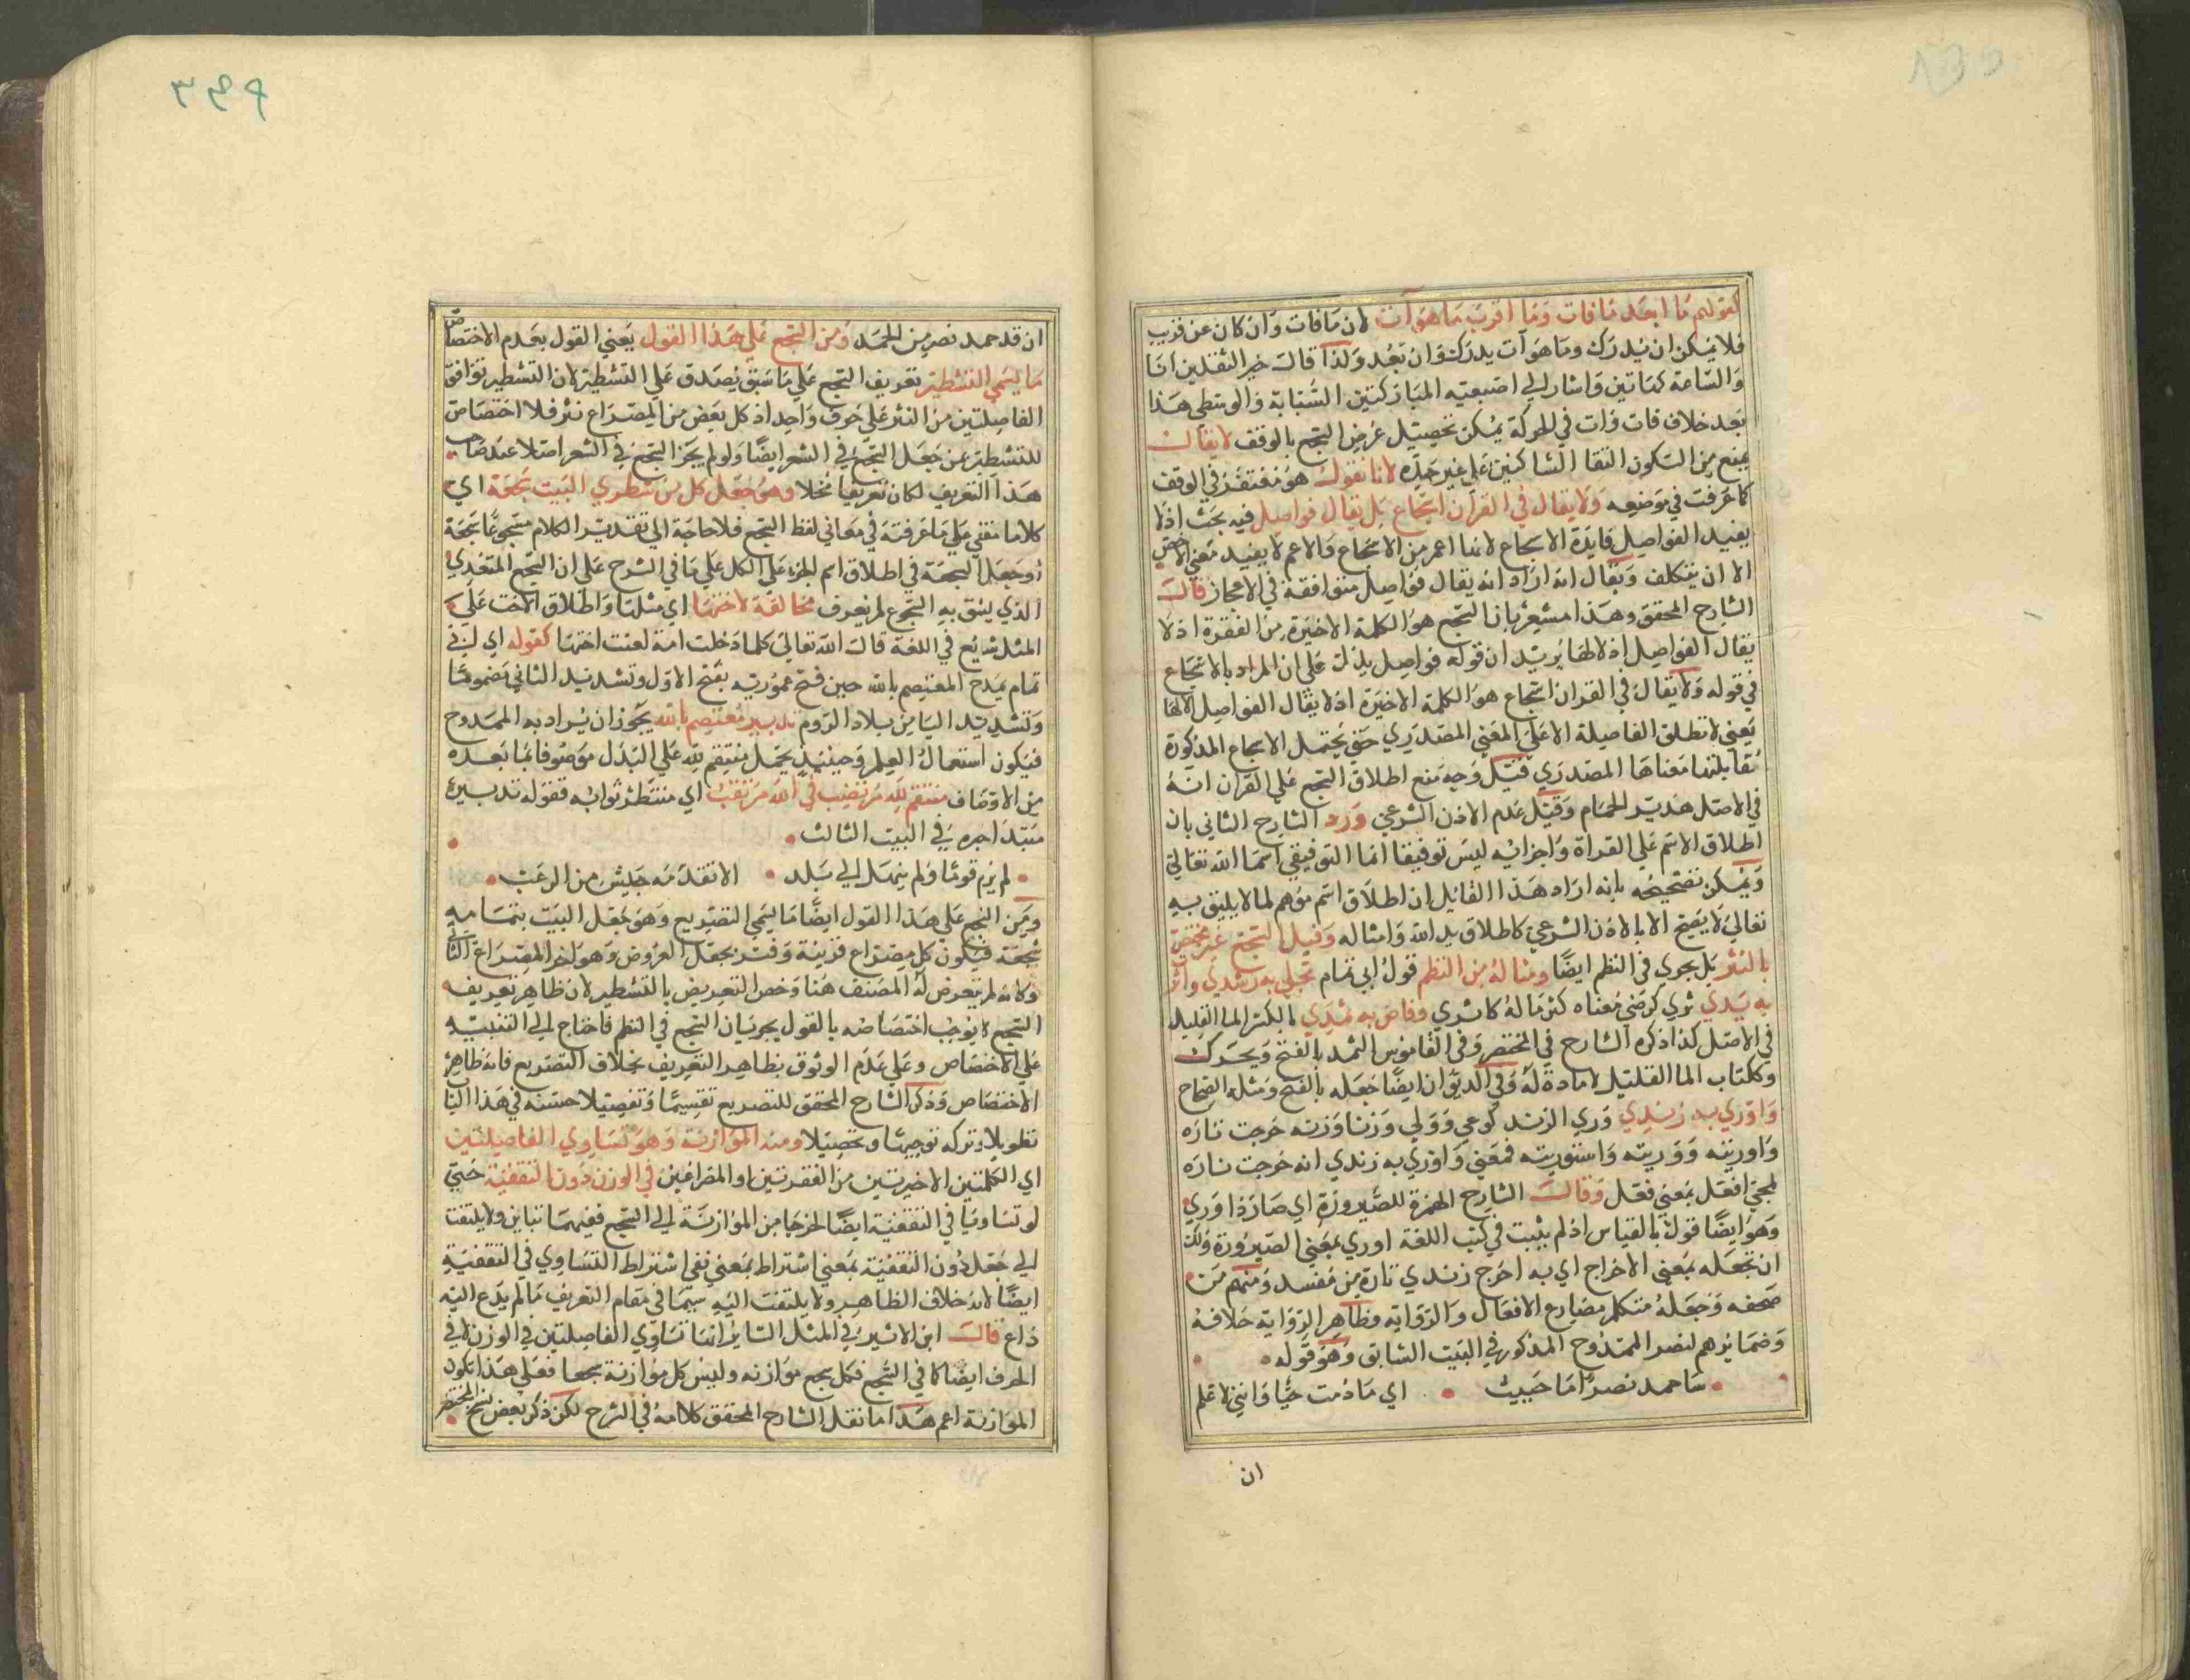 كقولهم ما ابعد ما فات وما اقرب ما هو آت لان ما فات وان كان عن قريب
فلا يمكن ان يدرك وما هو آت يدرك وان بعد ولذا قال خير الثقلين انا
والساعة كهاتين واشار الي اصبعيه المباركتين السبابة والوسطي هذا
بعد خلاف فات وات في الحركة يمكن تحصيل غرض السجع بالوقف لا يقال
يمنع من السكون التقا الساكنين علي غير حده لانا نقول هو مغتفر في الوقف
كما عرفت في موضعه ولا يقال في القرآن اسجاع بل يقال فواصل فيه بحث اذ لا
يفيد الفواصل فايدة الاسجاع لانها اعم من الاسجاع والاعم لا يفيد معني الاخص
الا ان يتكلف ويقال انه اراد انه يقال فواصل متوافقة في الاعجاز قال
الشارح المحقق وهذا مشعر بان السجع هو الكلمة الاخيرة من الفقرة اذ لا
يقال الفواصل الا لها يريد ان قوله فواصل يدل علي ان المراد بالاسجاع
في قوله ولا يقال في القران اسجاع هو الكلمة الاخيرة اذ لا يقال الفواصل الا لها
يعني لا تطلق الفاصلة الا علي المعني المصدري حتي يحتمل الاسجاع المذكورة
بمقابلتها معناها المصدري قيل وجه منع اطلاق السجع علي القران انه
في الاصل هدير الحمام وقيل عدم الاذن الشرعي ورد الشارح الثاني بان
اطلاق الاسم علي القراة واجزايه ليس توفيقا انما التوفيقي اسما الله تعالي
ويمكن تصحيحه بانه اراد هذا القايل ان اطلاق اسم موهم لما لا يليق به
تعالي لا يصح الا بالاذن الشرعي كاطلاق يد الله وامثاله وقيل السجع غير مختص
بالنثر بل يجري في النظم ايضا ومثاله من النظم قول ابي تمام تجلي به رشدي واثر
به يدي ثري كرضي معناه كثر ماله كاثري وفاض به ثمدي بالكسر الما القليل
في الاصل كذا ذكره الشارح في المختصر وفي القاموس الثمد بالفتح ويحرك
وككتاب الما القليل لا مادة له وفي الديوان ايضا جعله بالفتح ومثله الصحاح
واوري به زندي وري الزند كوعي وولي وزنا وزنه خرجت ناره
واوريته ووريته واستوريته فمعني واوري به زندي انه خرجت ناره
لمجي افعل بمعني فعل وقال الشارح الهمزة للصيرورة اي صار ذا وري
وهو ايضا قول بالقياس اذ لم يثبت في كتب اللغة اوري بمعني الصيرورة ولك
ان تجعله بمعني الاخراج اي به اخرج زندي ناره من مفسد ومنهم من
صحفه وجعله متكلم مضارع الافعال والرواية وظاهر الرواية خلافه
وضمايرهم لنصر الممدوح المذكور في البيت السابق وهو قوله
ساحمد نصرا ما حييت اي ما دمت حيا وانني لاعلم
ان
ان قد حمد نصر من الحمد ومن السجع علي هذا القول يعني القول بعدم الاختصاص
ما يسمي التشطير تعريف السجع علي ما سبق يصدق علي التشطير لان التشطير توافق
الفاصلتين من النثر علي حرف واحد اذ كل بعض من المصراع نثر فلا اختصاص
للتشطير بمن جعل السجع في الشعر ايضا ولو لم يجز السجع في الشعر اصلا عند صاحب
هذا التعريف لكان تعريفا مخلا وهو جعل كل من شطري البيت سجعة اي
كلاما مقفي علي ما عرفته في معاني لفظ السجع فلا حاجة الي تقدير الكلام مسجوعا سجعة
او جعل السجعة في اطلاق اسم الجزء علي الكل علي ما في الشرح علي ان السجع المتعدي
الذي يشق به السجع لم يعرف مخالفة لاختها اي مثلها واطلاق الاخت علي
المثل شايع في اللغة قال الله تعالي كلما دخلت امة لعنت اختها كقوله اي ابي
تمام يمدح المعتصم بالله حين فتح عمورية بفتح الاول وتشديد الثاني مضموما
وتشديد اليا من بلاد الروم تدبير معتصم بالله يجوز ان يراد به الممدوح
فيكون استعمال العلم وحينئذ يحتمل منتقم لله علي البدل موصوفا بما بعده
من الاوصاف منتقم لله مرتغب في الله مرتقب اي منتظر ثوابه فقوله تدبير
مبتدا خبره في البيت الثالث
لم يرم قوما ولم ينهد الي بلد الا تقدمه جيش من الرعب
ومن السجع علي هذا القول ايضا ما يسمي التصريع وهو جعل البيت بتمامه
سجعة فيكون كل مصراع قرينة وفسر بجعل العروض وهو اخر المصراع الثاني
وكانه لم يتعرض له المصنف هنا وخص التعريض بالتشطير لان ظاهر تعريف
السجع لا يوجب اختصاصه بالقول بجريان السجع في النظم فاحتاج الي التنبيه
علي الاختصاص وعلي عدم الوثوق بظاهر التعريف بخلاف التصريع فانه ظاهر
الاختصاص وذكر الشارح المحقق للتصريع تقسيما وتفصيلا حسنه في هذا البا
تطويلا وتركه توجيها وتحصيلا ومنه الموازنة وهو تساوي الفاصلتين
اي الكلمتين الاخيرتين من الفقرتين او المصراعين في الوزن دون التقفية حتي
لو تساويا في التقفية ايضا لخرجا من الموازنة الي السجع فبينهما تباين ولا يلتفت
الي جعل دون التقفية بمعني اشتراط بمعني نفي اشتراط التساوي في التقفية
ايضا لانه خلاف الظاهر ولا يلتفت اليه سيما في مقام التعريف ما لم يدع اليه
داع قال ابن الاثير في المثل الساير انها تساوي الفاصلتين في الوزن لا في
الحرف ايضا كما في السجع فكل سجع موازنه وليس كل موازنة سجعا فعلي هذا تكون
الموازنة اعم هذا ما نقل الشارح المحقق كلامه في الشرح لكن ذكر بعض نسخ المختصر